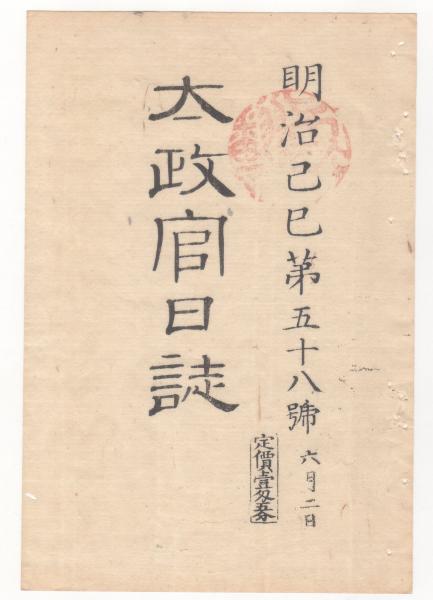 明治己巳第五十八號 六月二日
定價壹匁五分
太政官日誌